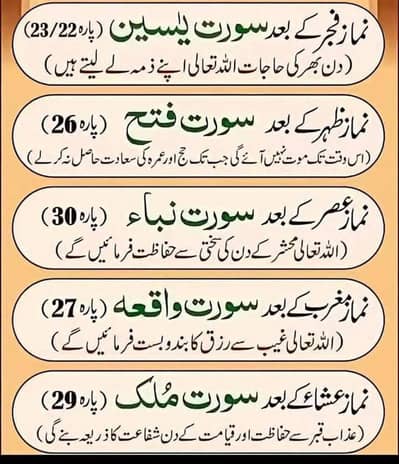 نماز فجر کے بعد سورت یٰسین (پارہ 23/22)
(دن بھر کی حاجات اللہ تعالی اپنے ذمہ لے لیتے ہیں)
نماز ظہر کے بعد سورت فتح (پارہ 26)
(اس وقت تک موت نہیں آئے گی جب تک حج اور عمرہ کی سعادت حاصل نہ کر لے)
نماز عصر کے بعد سورت نباء (پارہ 30)
(اللہ تعالی محشر کے دن کی سختی سے حفاظت فرمائیں گے)
نماز مغرب کے بعد سورت واقعہ (پارہ 27)
(اللہ تعالی غیب سے رزق کا بندوبست فرمائیں گے)
نماز عشاء کے بعد سورت مُلک (پارہ 29)
(عذاب قبر سے حفاظت اور قیامت کے دن شفاعت کا ذریعہ بنے گی)